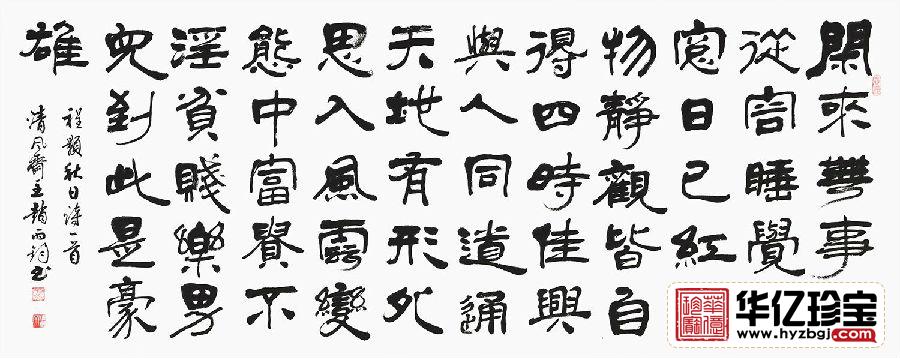 閑來無事
從容睡覺
窗日已紅
物靜觀皆自
得四時佳興
與人同道通
天地有形外
思入風雲變
態中富貴不
淫貧賤樂男
兒到此是豪
雄
程顥秋日詩一首
清風齋主趙
书
华亿珍宝
www.hyzbgj.com